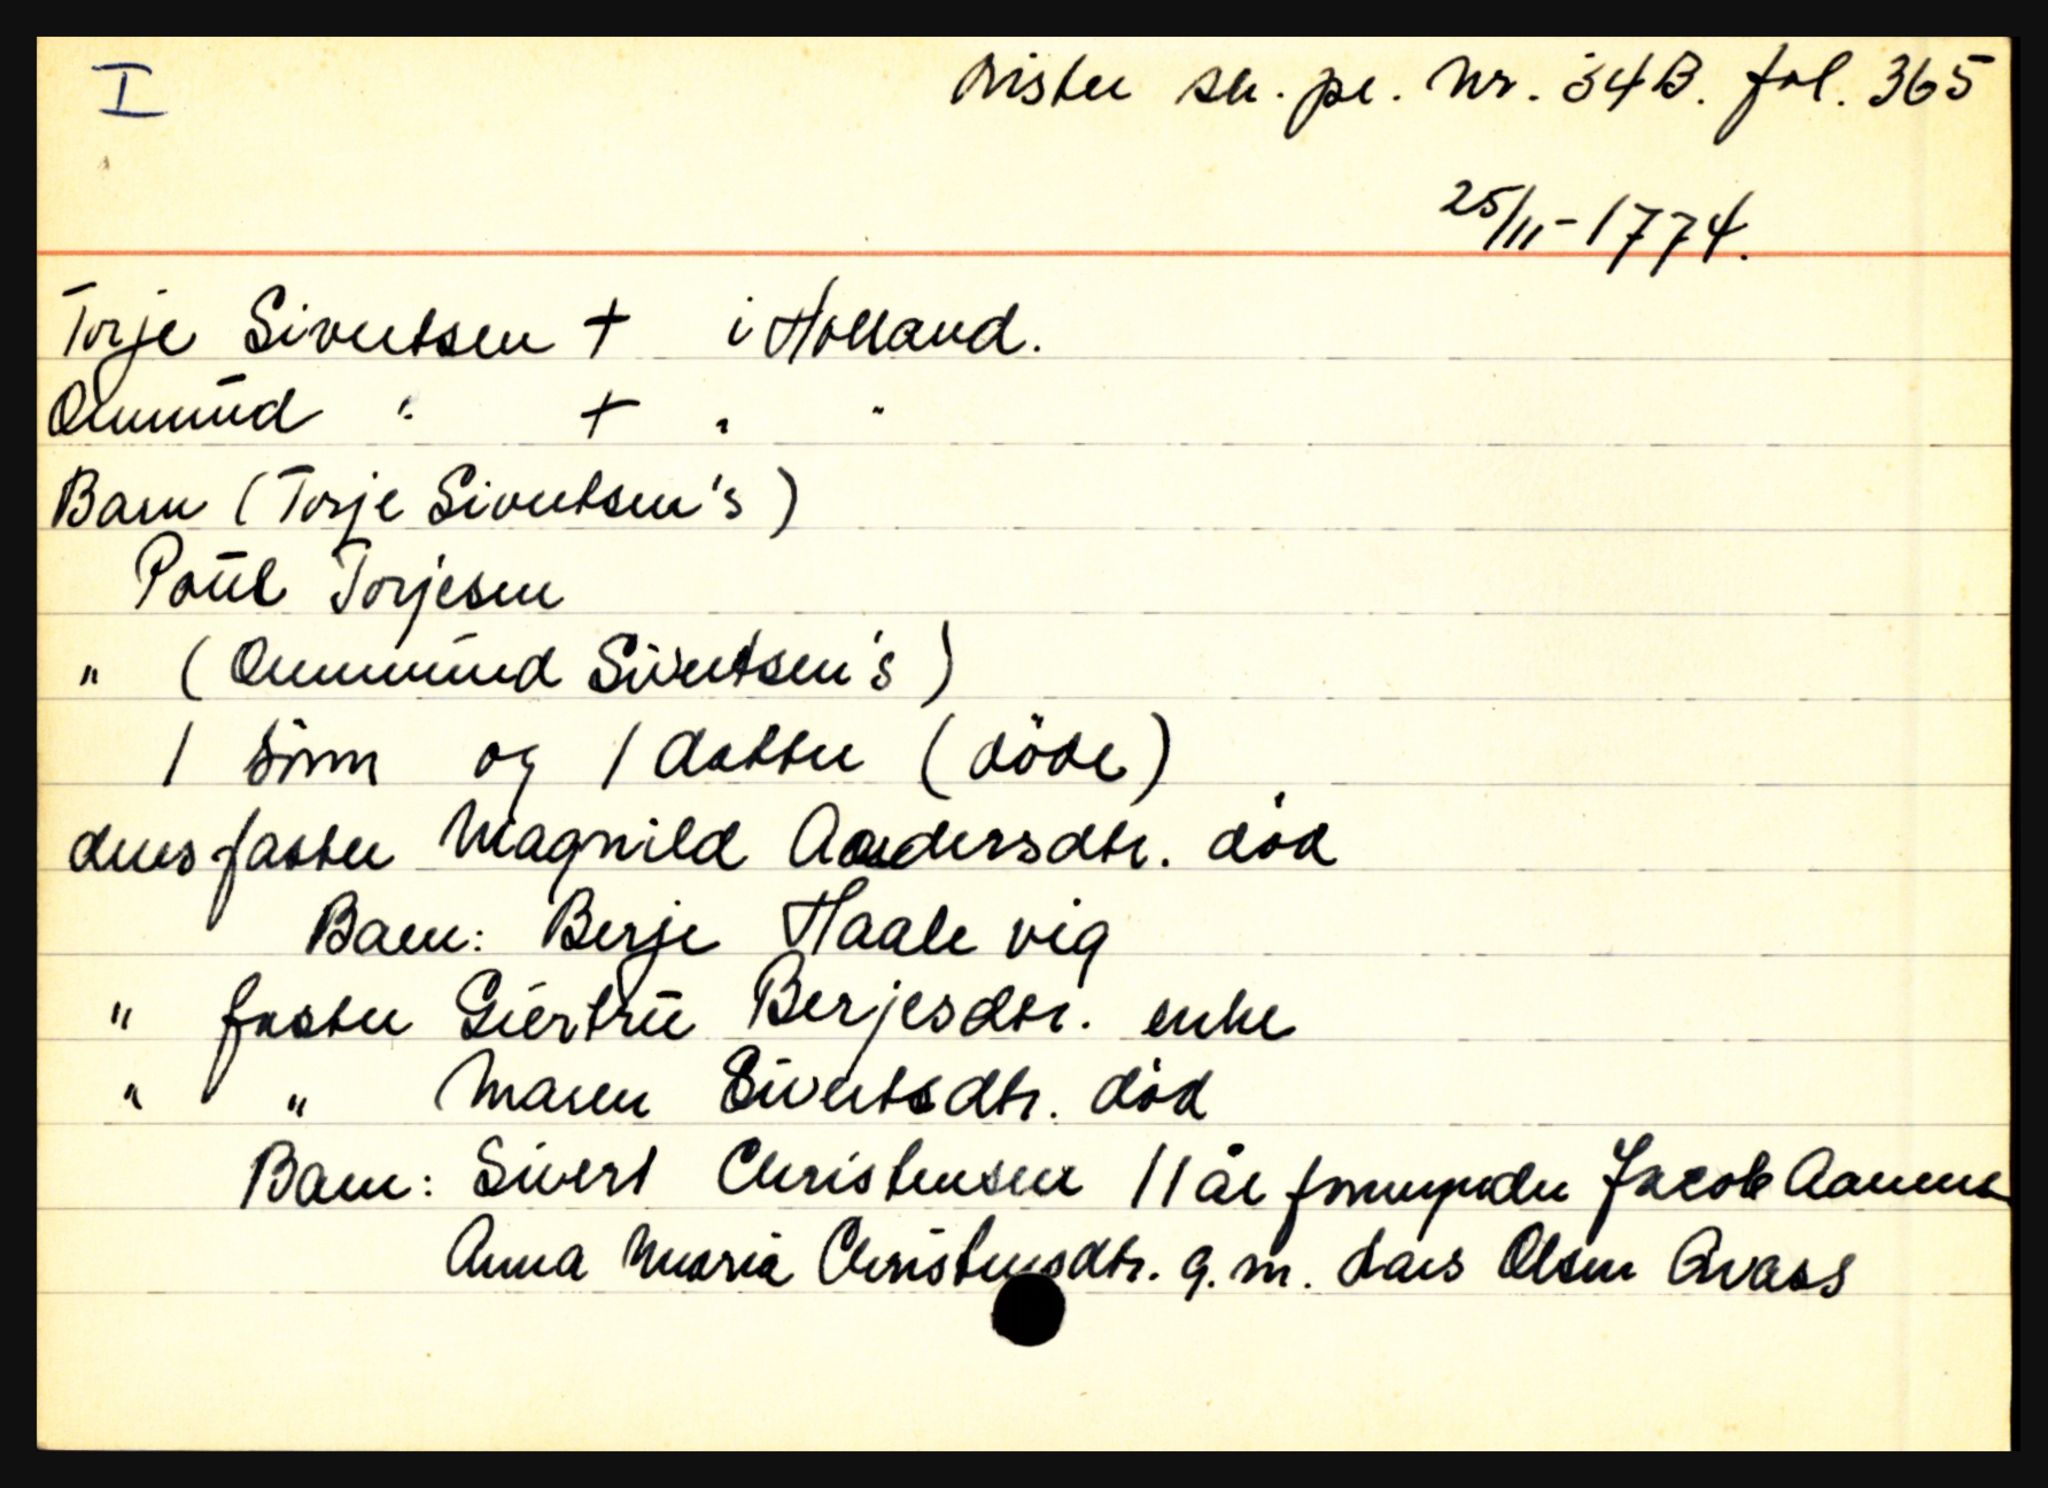 I
Lister sk. pr. Nr. 34B. fol. 365
25/11-1774.
Torje Sivertsen + i Holland.
Ommund " + " "
Barn (Torje Sivertsen's)
Poul Torjesen
" (Ommund Sivertsen's)
1 sönn og 1 datter (döde)
deres faster Magnild Aandersdtr. död
Barn: Berje Haale vig
" faster Giertru Berjesdtr. enke
" " Maren Sivertsdtr. död
Barn: Sivert Christensen 11 år formynder Jacob
Anna Maria Christensdtr. g. m. Lars Olsen Qvass